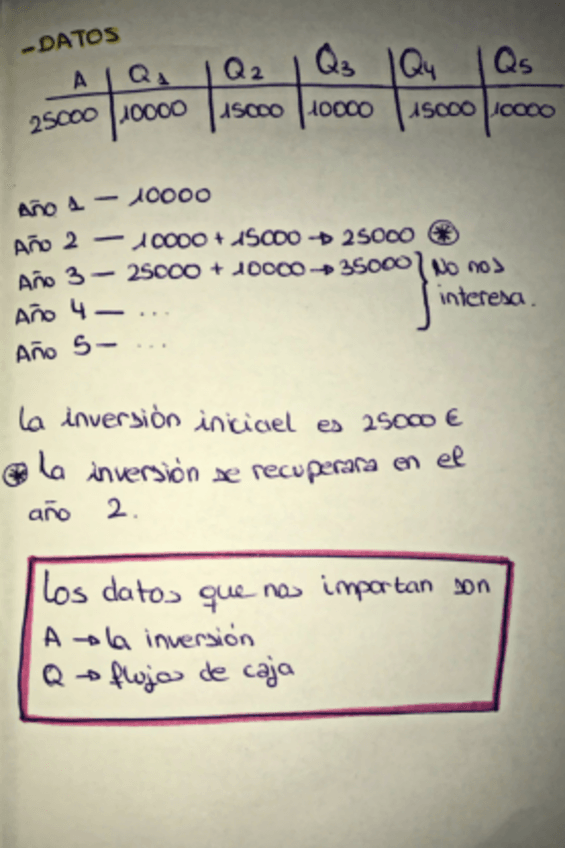 -DATOS
A | Q1 | Q2 | Q3 | Q4 | Q5
25000 | 10000 | 15000 | 10000 | 15000 | 10000
Año 1 — 10000
Año 2 — 10000 + 15000 → 25000 ⊛
Año 3 — 25000 + 10000 → 35000 } No nos
Año 4 — ... interesa.
Año 5 — ...
La inversión inicial es 25000 €
⊛ La inversión se recuperara en el
año 2.
Los datos que nos importan son
A → la inversión
Q → flujos de caja